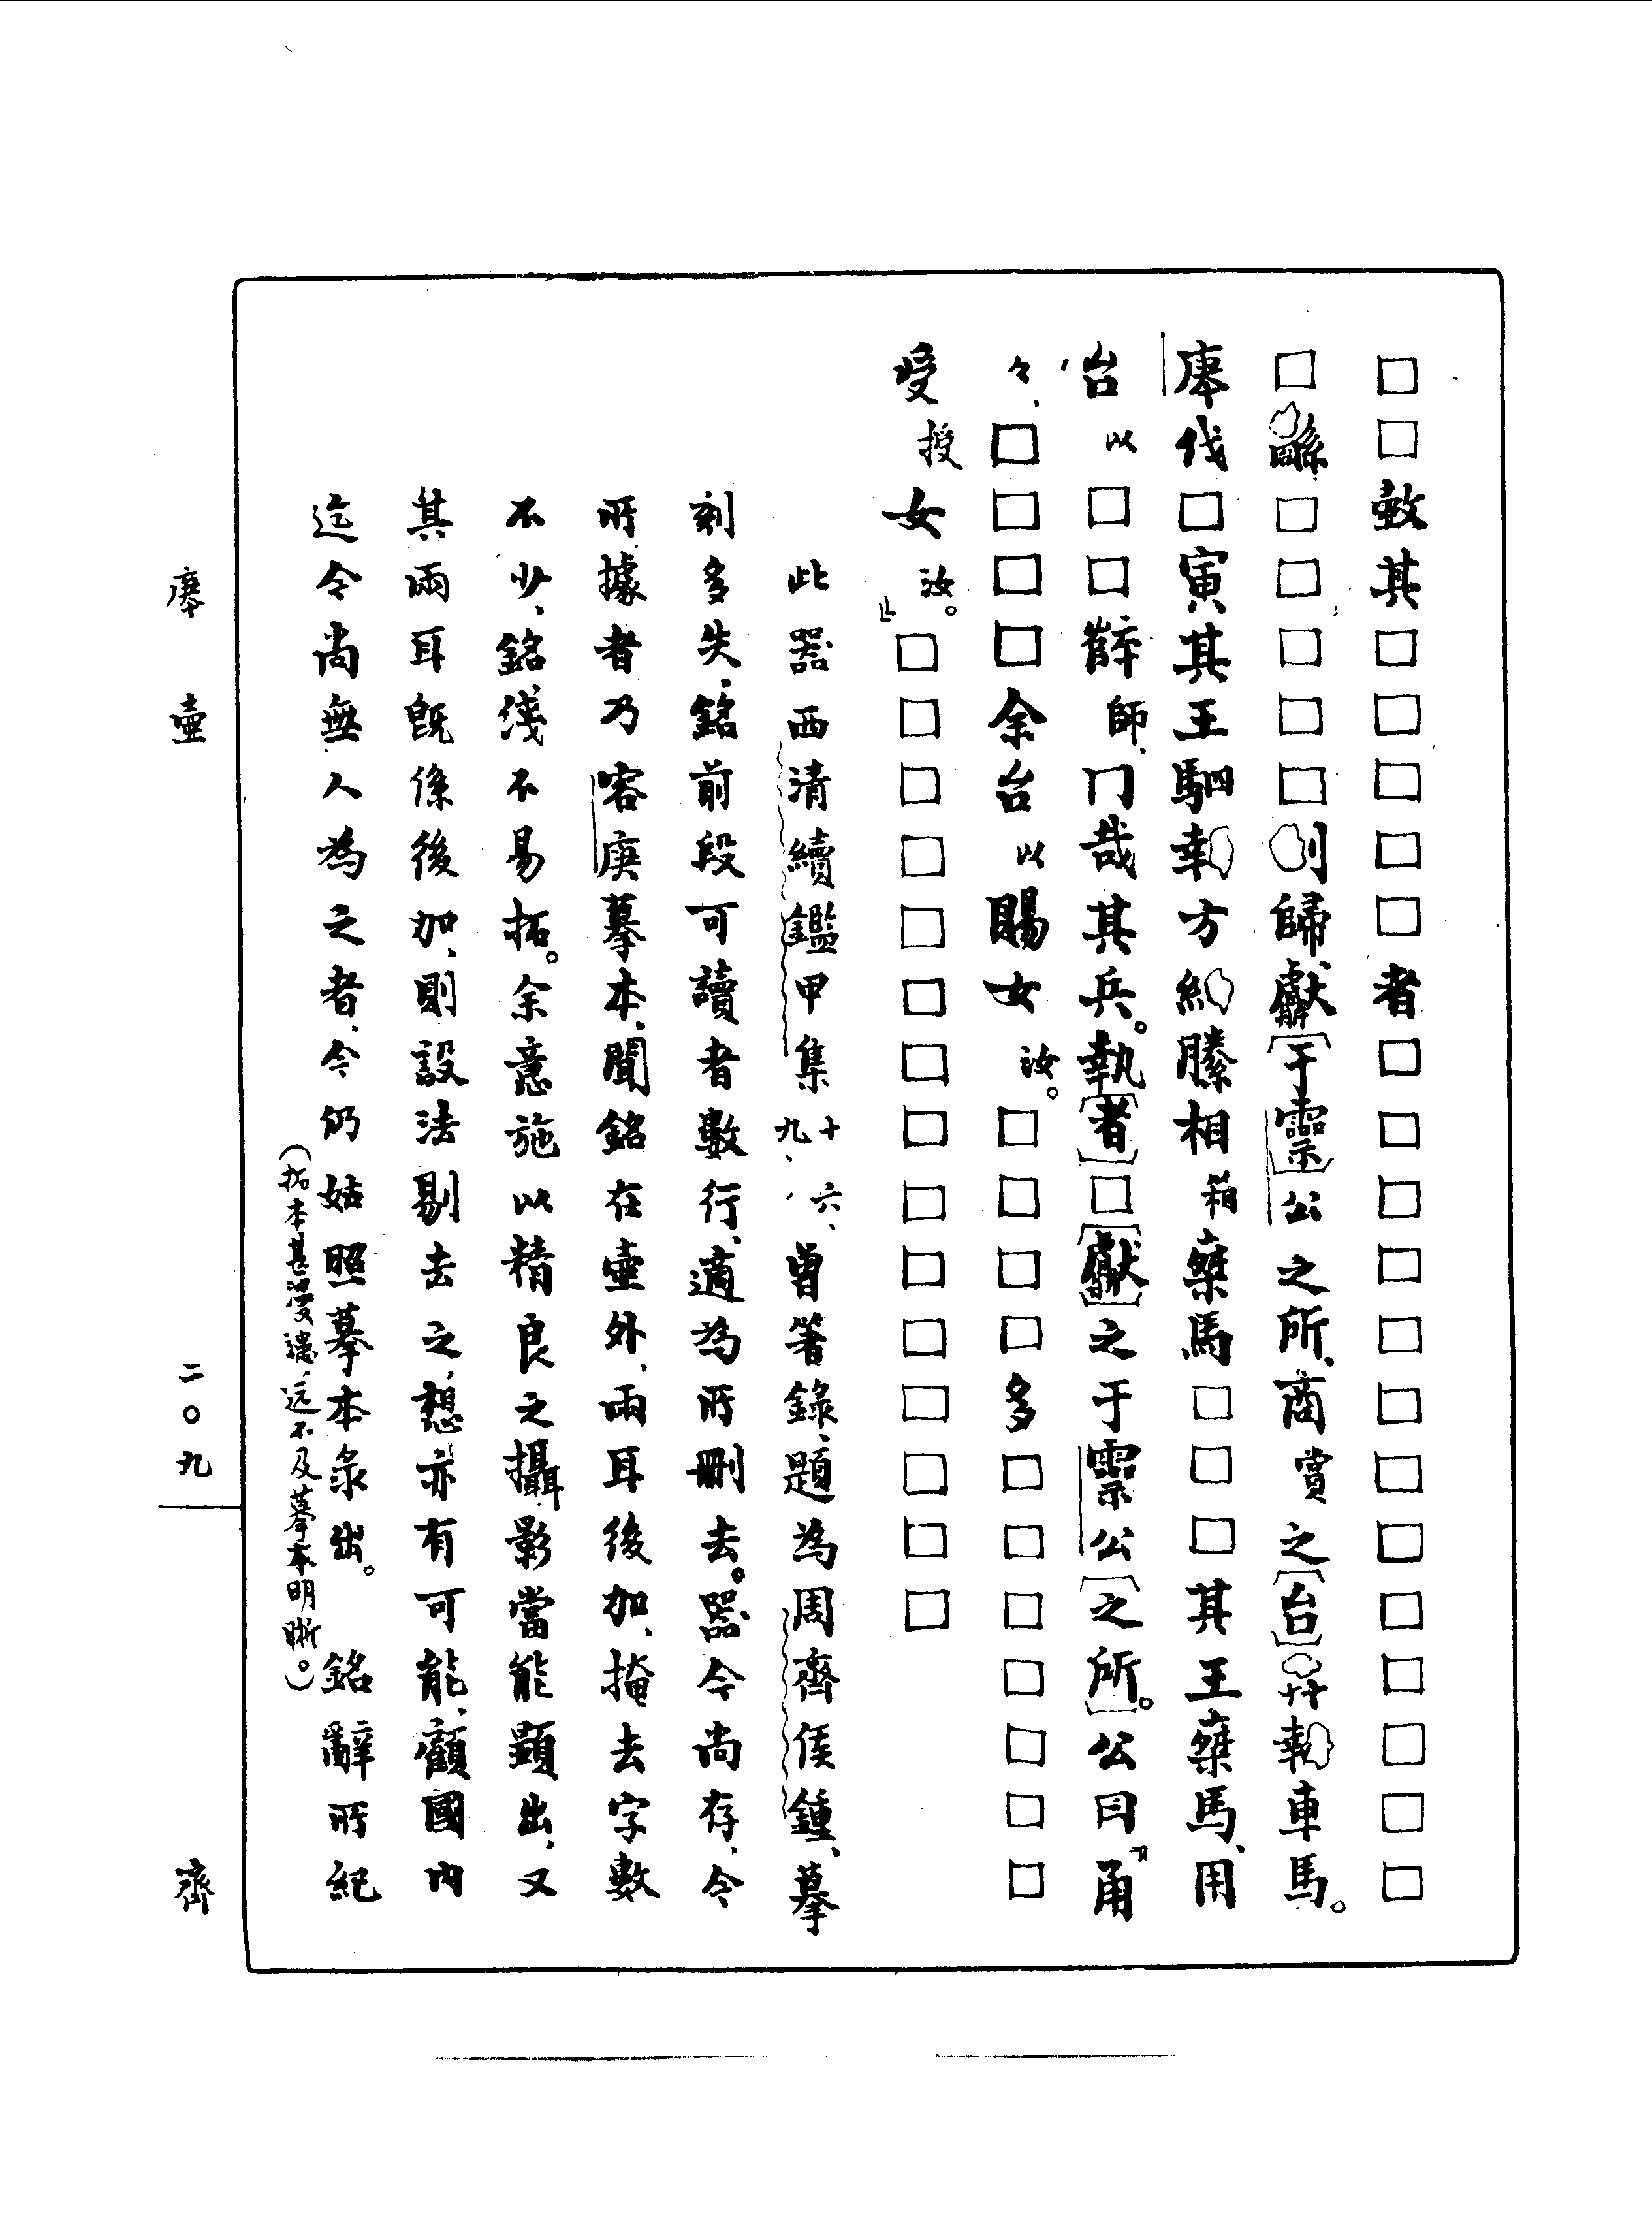 □□㪉其□□□□□者□□□□□□□□□□□□□
□□□□□□□歸獻[于𩆜]公之所、商賞之[台]車馬。
庚伐□寅其王駟方滕相箱乘馬□□□其王乘馬、用
台以□□辭師、門哉其兵。執[者]□[獻]之于𩆜公[之所]。公曰『甬
々、□□□□余台以賜女汝。□□□□多□□□□□□□
受授女汝。』□□□□□□□□□□□□□□□
此器西清續鑑甲集十六、九、曾箸錄、題為周齊侯鍾、摹
刻多失、銘前段可讀者數行、適為所刪去。器今尚存、今
所據者乃容庚摹本、聞銘在壺外、兩耳後加、掩去字數
不少、銘淺不易拓。余意施以精良之攝影當能顯出、又
其兩耳既係後加、則設法剔去之、想亦有可能、顧國內
迄今尚無人為之者、今仍姑照摹本彔出。 銘辭所紀
(拓本甚漫漶、远不及摹本明晰。)
庚壺 二〇九 齊